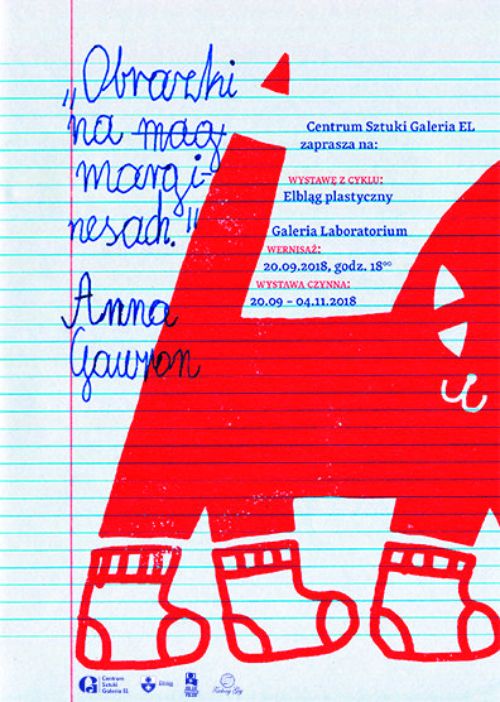 „Obrazki
na mag
margi-
nesach."
Anna
Gawron
Centrum Sztuki Galeria EL
zaprasza na:
WYSTAWĘ Z CYKLU:
Elbląg plastyczny
Galeria Laboratorium
WERNISAŻ:
20.09.2018, godz. 18⁰⁰
WYSTAWA CZYNNA:
20.09 – 04.11.2018
Centrum
Sztuki
Galeria EL
Elbląg